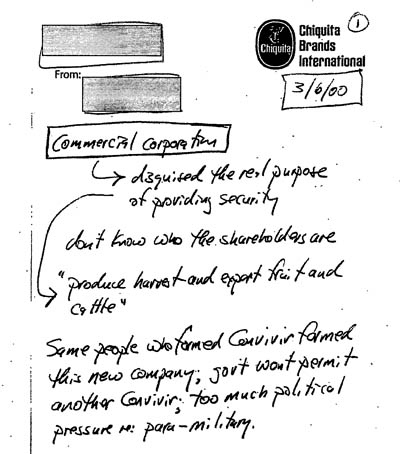 1
Chiquita
Chiquita
Brands
International
From:
3/6/00
Commercial Corporation
disguised the real purpose
of providing security
don't know who the shareholders are
"produce harvest and export fruit and
cattle"
Same people who formed Convivir formed
this new company; gov't won't permit
another Convivir; too much political
pressure re: para-military.